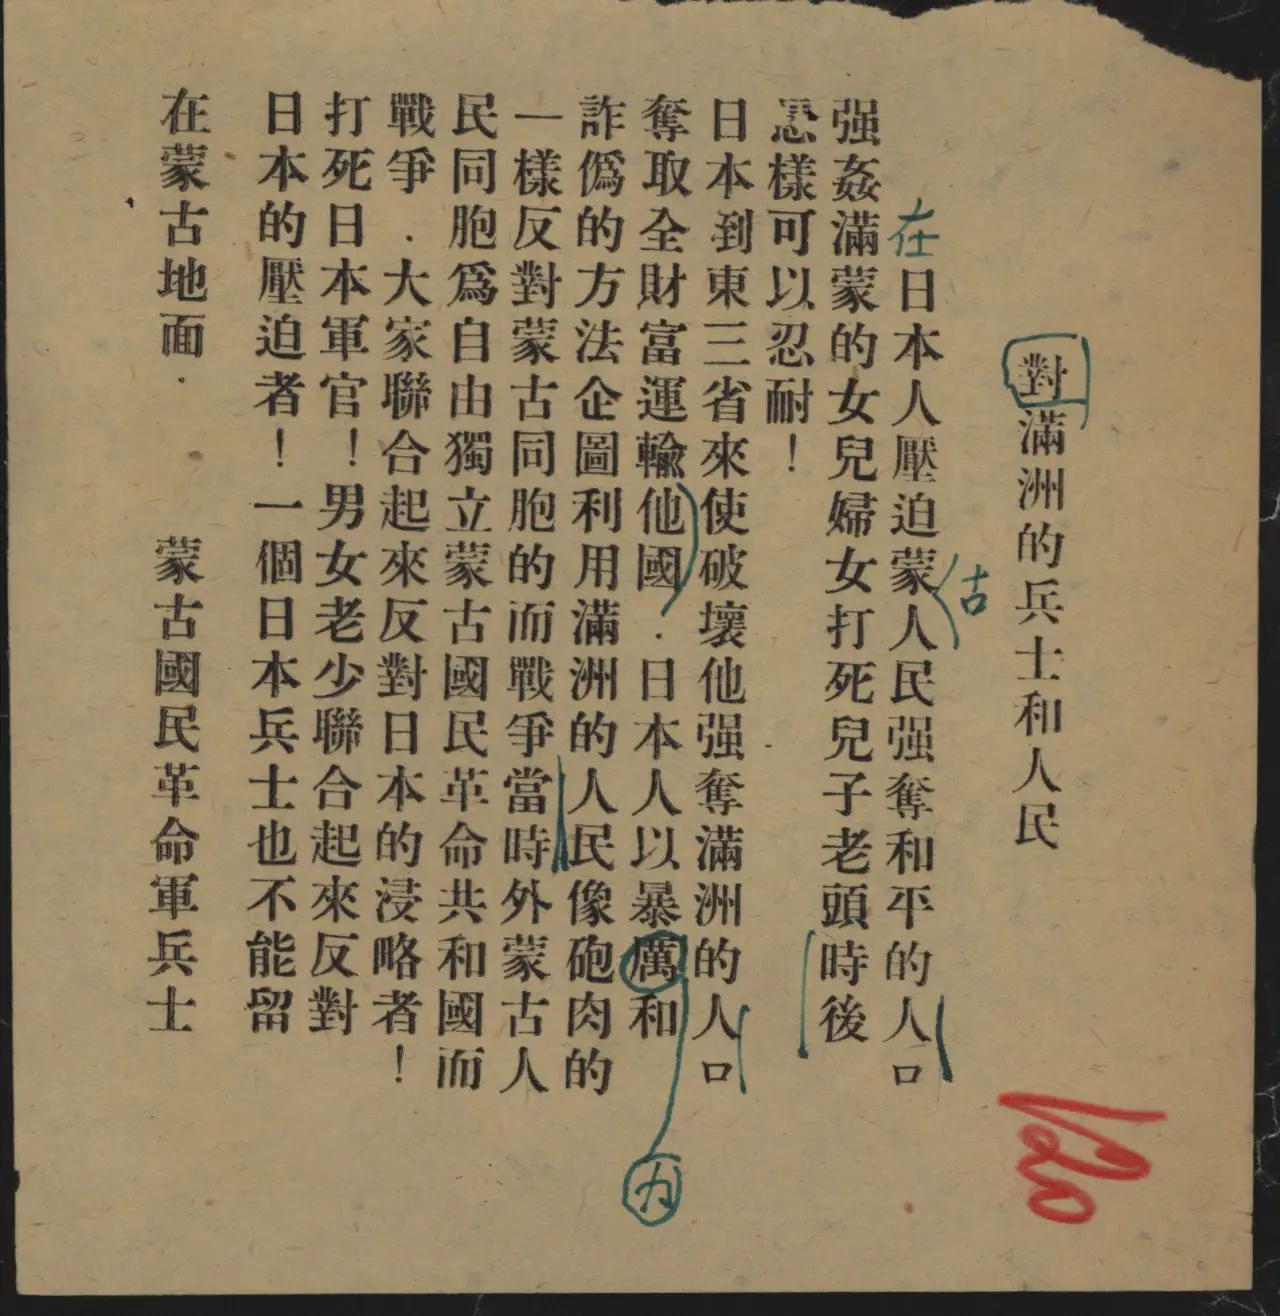 對滿洲的兵士和人民
在日本人壓迫蒙人民强奪和平的人口
古
强姦滿蒙的女兒婦女打死兒子老頭時後
怎樣可以忍耐！
日本到東三省來使破壞他强奪滿洲的人口
奪取全財富運輸他國．日本人以暴厲和
力
詐僞的方法企圖利用滿洲的人民像砲肉的
一樣反對蒙古同胞的而戰爭當時外蒙古人
民同胞爲自由獨立蒙古國民革命共和國而
戰爭．大家聯合起來反對日本的浸略者！
打死日本軍官！男女老少聯合起來反對
日本的壓迫者！一個日本兵士也不能留
在蒙古地面．
蒙古國民革命軍兵士
120